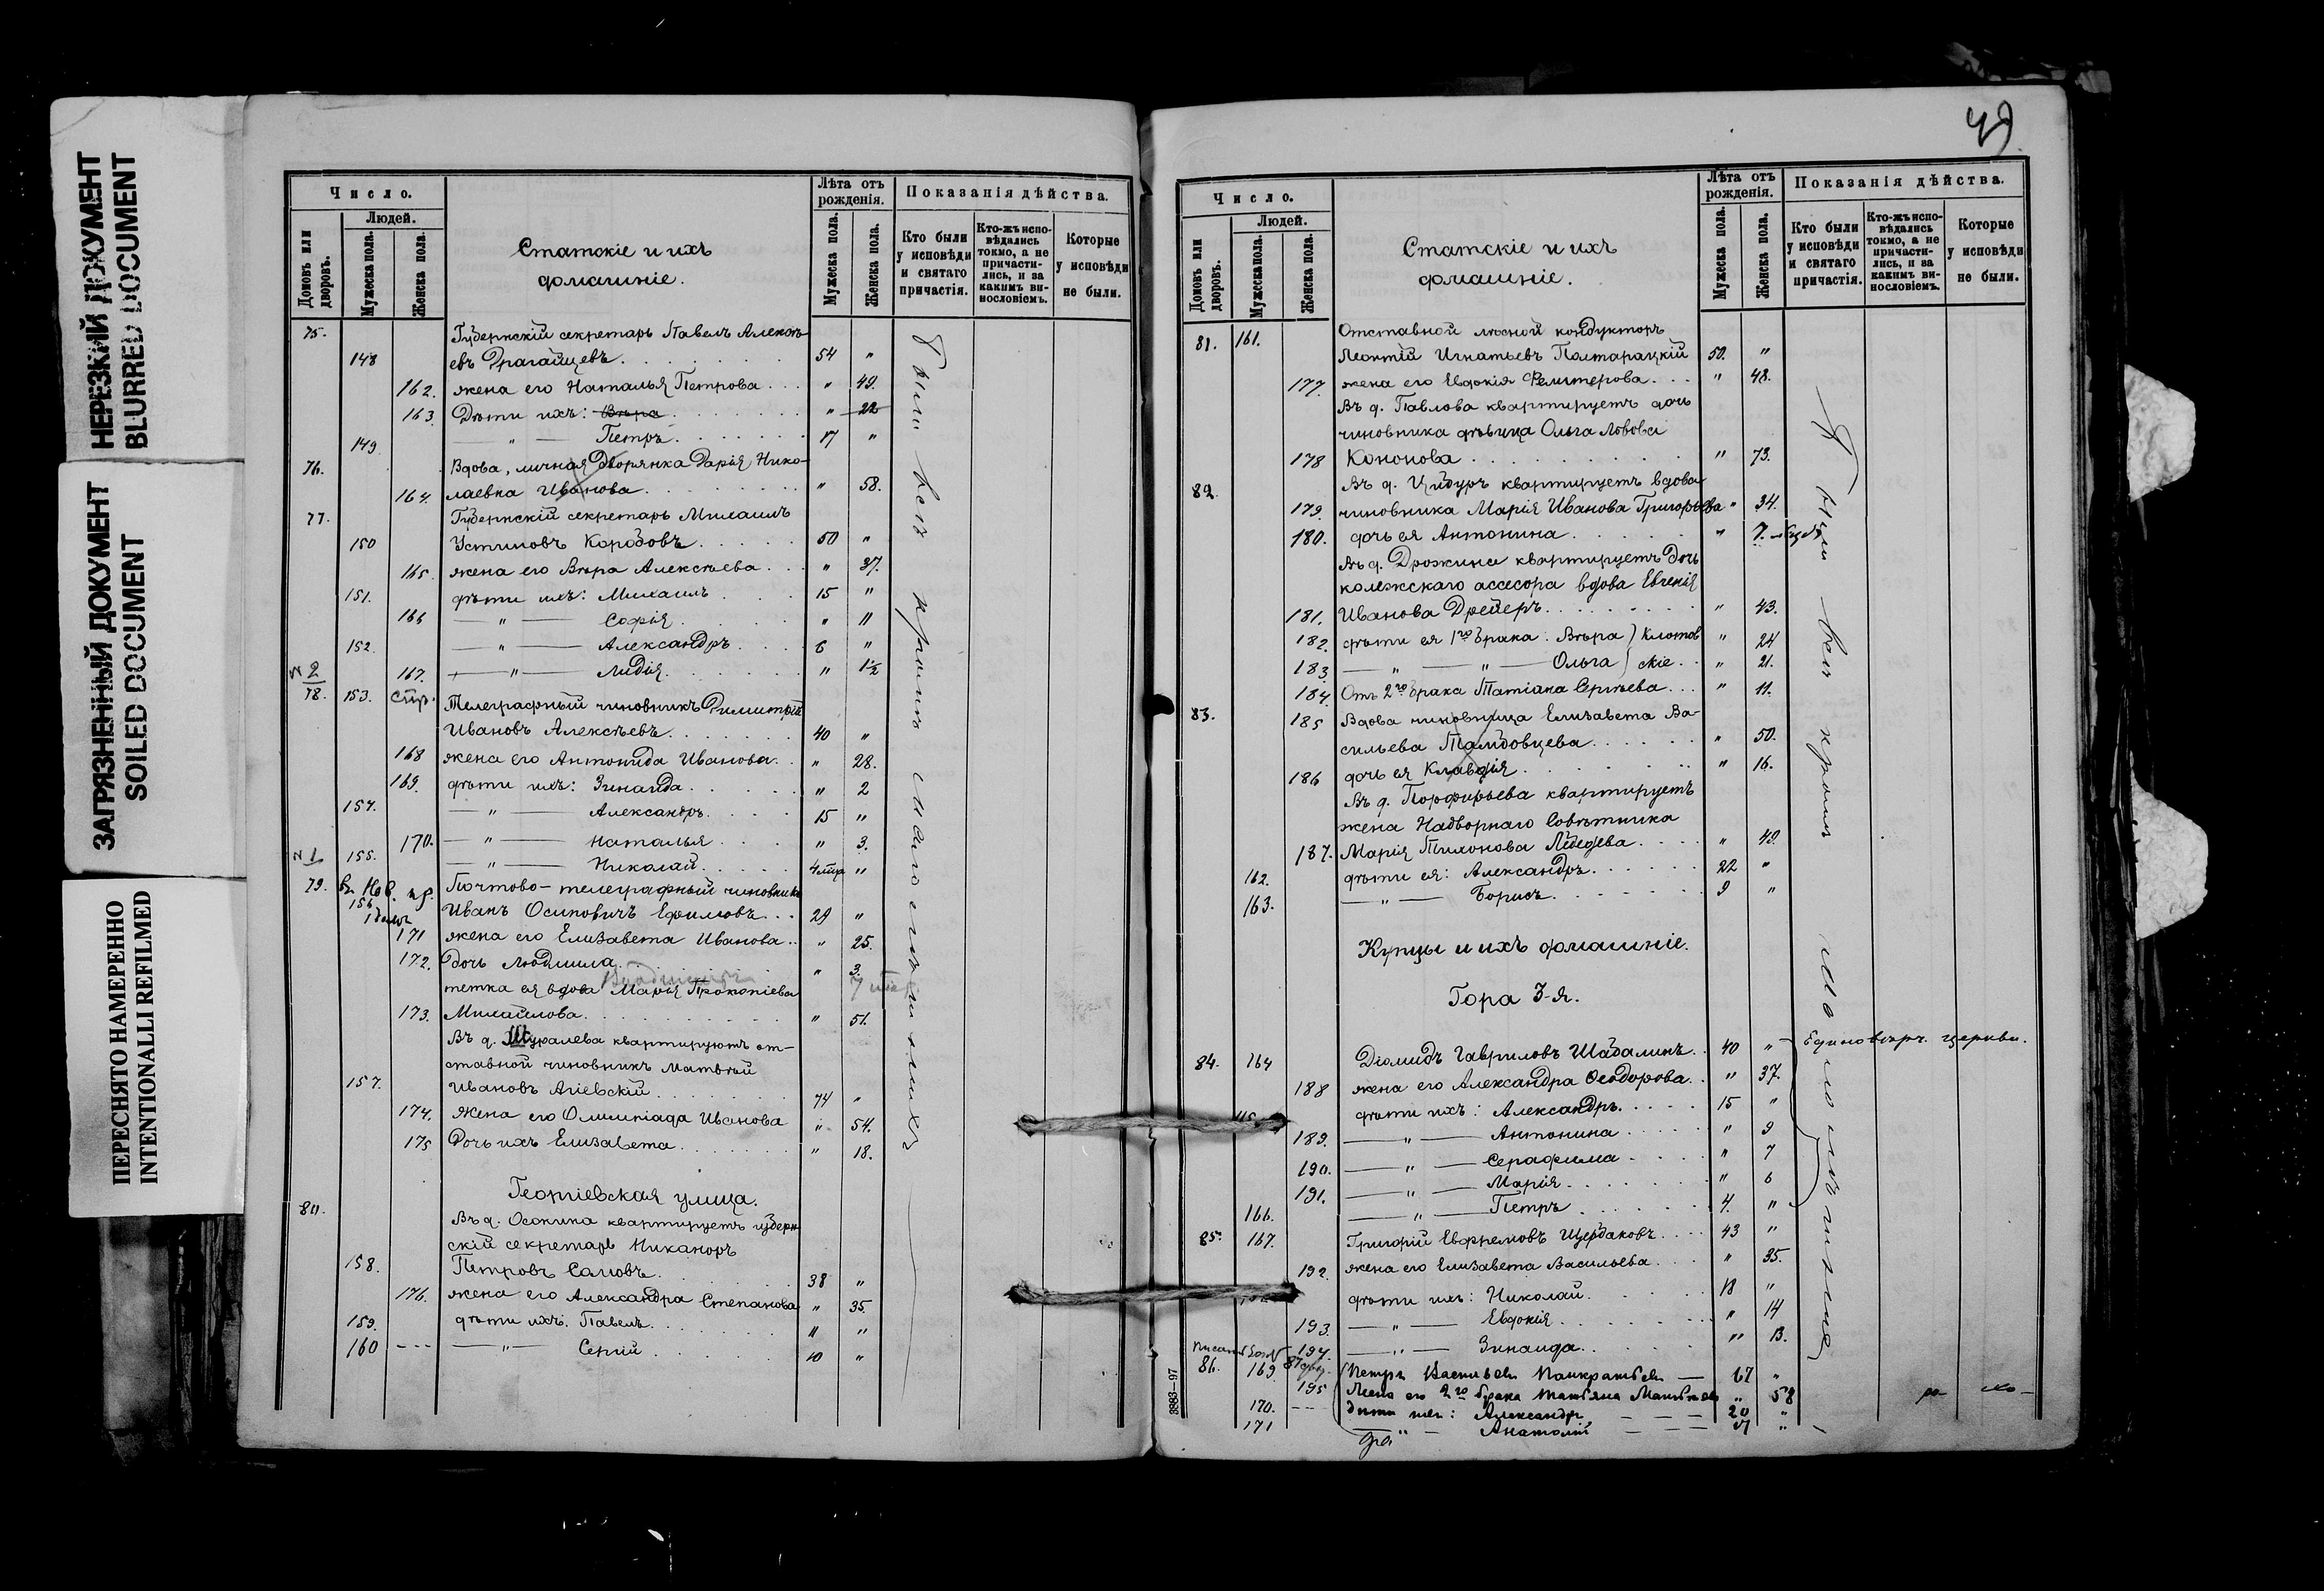 НЕРЕЗКИЙ ДОКУМЕНТ
BLURRED DOCUMENT
ЗАГРЯЗНЕННЫЙ ДОКУМЕНТ
SOILED DOCUMENT
ПЕРЕСНЯТО НАМЕРЕННО
INTENTIONALLI REFILMED
Число.
Лѣта отъ рожденія.
Показанія дѣйства.
Домовъ или дворовъ.
Людей.
Мужеска пола.
Женска пола.
Статскіе и ихъ
домашніе.
Мужеска пола.
Женска пола.
Кто были у исповѣди и святаго причастія.
Кто-жъ исповѣдались токмо, а не причастились, и за какимъ винословіемъ.
Которые у исповѣди не были.
75. Губернскій секретарь Павелъ Алексѣ-
148 евъ Драгайцевъ 54 "
162. жена его Наталья Петрова " 49.
163 Дѣти ихъ: Вѣра " 22
149 — " — Петръ 17 "
76. Вдова, личная дворянка Дарья Нико-
164. лаевна Иванова " 58.
77. Губернскій секретарь Михаилъ
150 Устиновъ Коробовъ 50 "
165. жена его Вѣра Алексѣева " 37.
151. дѣти ихъ: Михаилъ 15 "
166 — " — Софія " 11
152. — " — Александръ 6 "
№ 2
167. — " — Лидія " 1½
78. 153. Телеграфный чиновникъ Димитрій
Ивановъ Алексѣевъ 40 "
168 жена его Антонида Иванова " 28.
169. дѣти ихъ: Зинаида " 2
154. — " — Александръ 15 "
170. — " — Наталья " 3.
№ 1
155. — " — Николай "
79. Почтово-телеграфный чиновникъ
156 Иванъ Осиповичъ Ефимовъ 29 "
171 жена его Елизавета Иванова " 25.
172. Дочь Людмила " 3.
тетка ея вдова Марья Прокопіева
173. Михайлова " 51.
Въ д. Шуралева квартируютъ от-
ставной чиновникъ Матвѣй
157. Ивановъ Агіевскій 74 "
174. Жена его Олимпіада Иванова " 54.
175 Дочь ихъ Елизавета " 18.
Георгіевская улица.
80. Въ д. Осокина квартируетъ губерн
скій секретарь Никаноръ
158. Петровъ Саловъ 38 "
176. жена его Александра Степанова " 35.
159. дѣти ихъ: Павелъ 11 "
160 — " — Сергій 10 "
Были всѣ кромѣ малолѣтнихъ
49.
Число.
Лѣта отъ рожденія.
Показанія дѣйства.
Домовъ или дворовъ.
Людей.
Мужеска пола.
Женска пола.
Статскіе и ихъ
домашніе.
Мужеска пола.
Женска пола.
Кто были у исповѣди и святаго причастія.
Кто-жъ исповѣдались токмо, а не причастились, и за какимъ винословіемъ.
Которые у исповѣди не были.
81. 161. Отставной лѣсной кондукторъ
Леонтій Игнатьевъ Полтарацкій 50. "
177. жена его Евдокія " 48.
Въ д. Павлова квартируетъ дочь
чиновника дѣвица Ольга Львова
178 Кононова " 73.
82. Въ д. квартируетъ вдова
179. чиновника Марія Иванова Григорьева " 34.
180. дочь ея Антонина " 7.
Въ д. Дрожжина квартируетъ Дочь
колежскаго ассесора вдова Евгенія
181. Иванова Дрейеръ " 43.
182. дѣти ея 1го брака: Вѣра " 24
183. — " — " — Ольга " 21.
184. Отъ 2го брака Татіана Сергѣева " 11.
83. 185 Вдова чиновница Елизавета Ва-
сильева " 50.
186 дочь ея Клавдія " 16.
Въ д. Порфирьева квартируетъ
жена Надворнаго Совѣтника
187. Марія Тихонова Лебедева " 49.
162. дѣти ея: Александръ 22 "
163. — " — Борисъ 9 "
Купцы и ихъ домашніе.
Гора 3-я.
84. 164 Діомидъ Гавриловъ Шабалинъ 40 " Единовѣрч. церкви.
188 жена его Александра Ѳеодорова " 37.
дѣти ихъ: Александръ 15 "
189. — " — Антонина " 9
190. — " — Серафима " 7
191. — " — Марія " 6
166. — " — Петръ 4. "
85. 167. Григорій Евфремовъ Щербаковъ 43 "
192. жена его Елизавета Васильева " 35.
дѣти ихъ: Николай 18 "
193. — " — Евдокія " 14
194. — " — Зинаида " 13.
86. 169 Петръ Васильевъ Панкратьевъ — 67 "
195 Жена его 2го брака Татьяна Матвѣева " 58
170. дѣти ихъ: Александръ 20 "
171 — " — Анатолій "
Были всѣ кромѣ малолѣтнихъ
3883—97